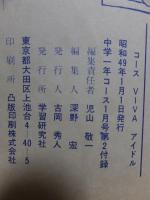 コース VIVA アイドル
昭和49年1月1日発行
中学一年コース1月号第2付録
編集責任者 児山 敬一
編集人 深野 宏
発行人 古岡 秀人
発行所 学習研究社
東京都大田区上池台4-40-5
印刷所 凸版印刷株式会社